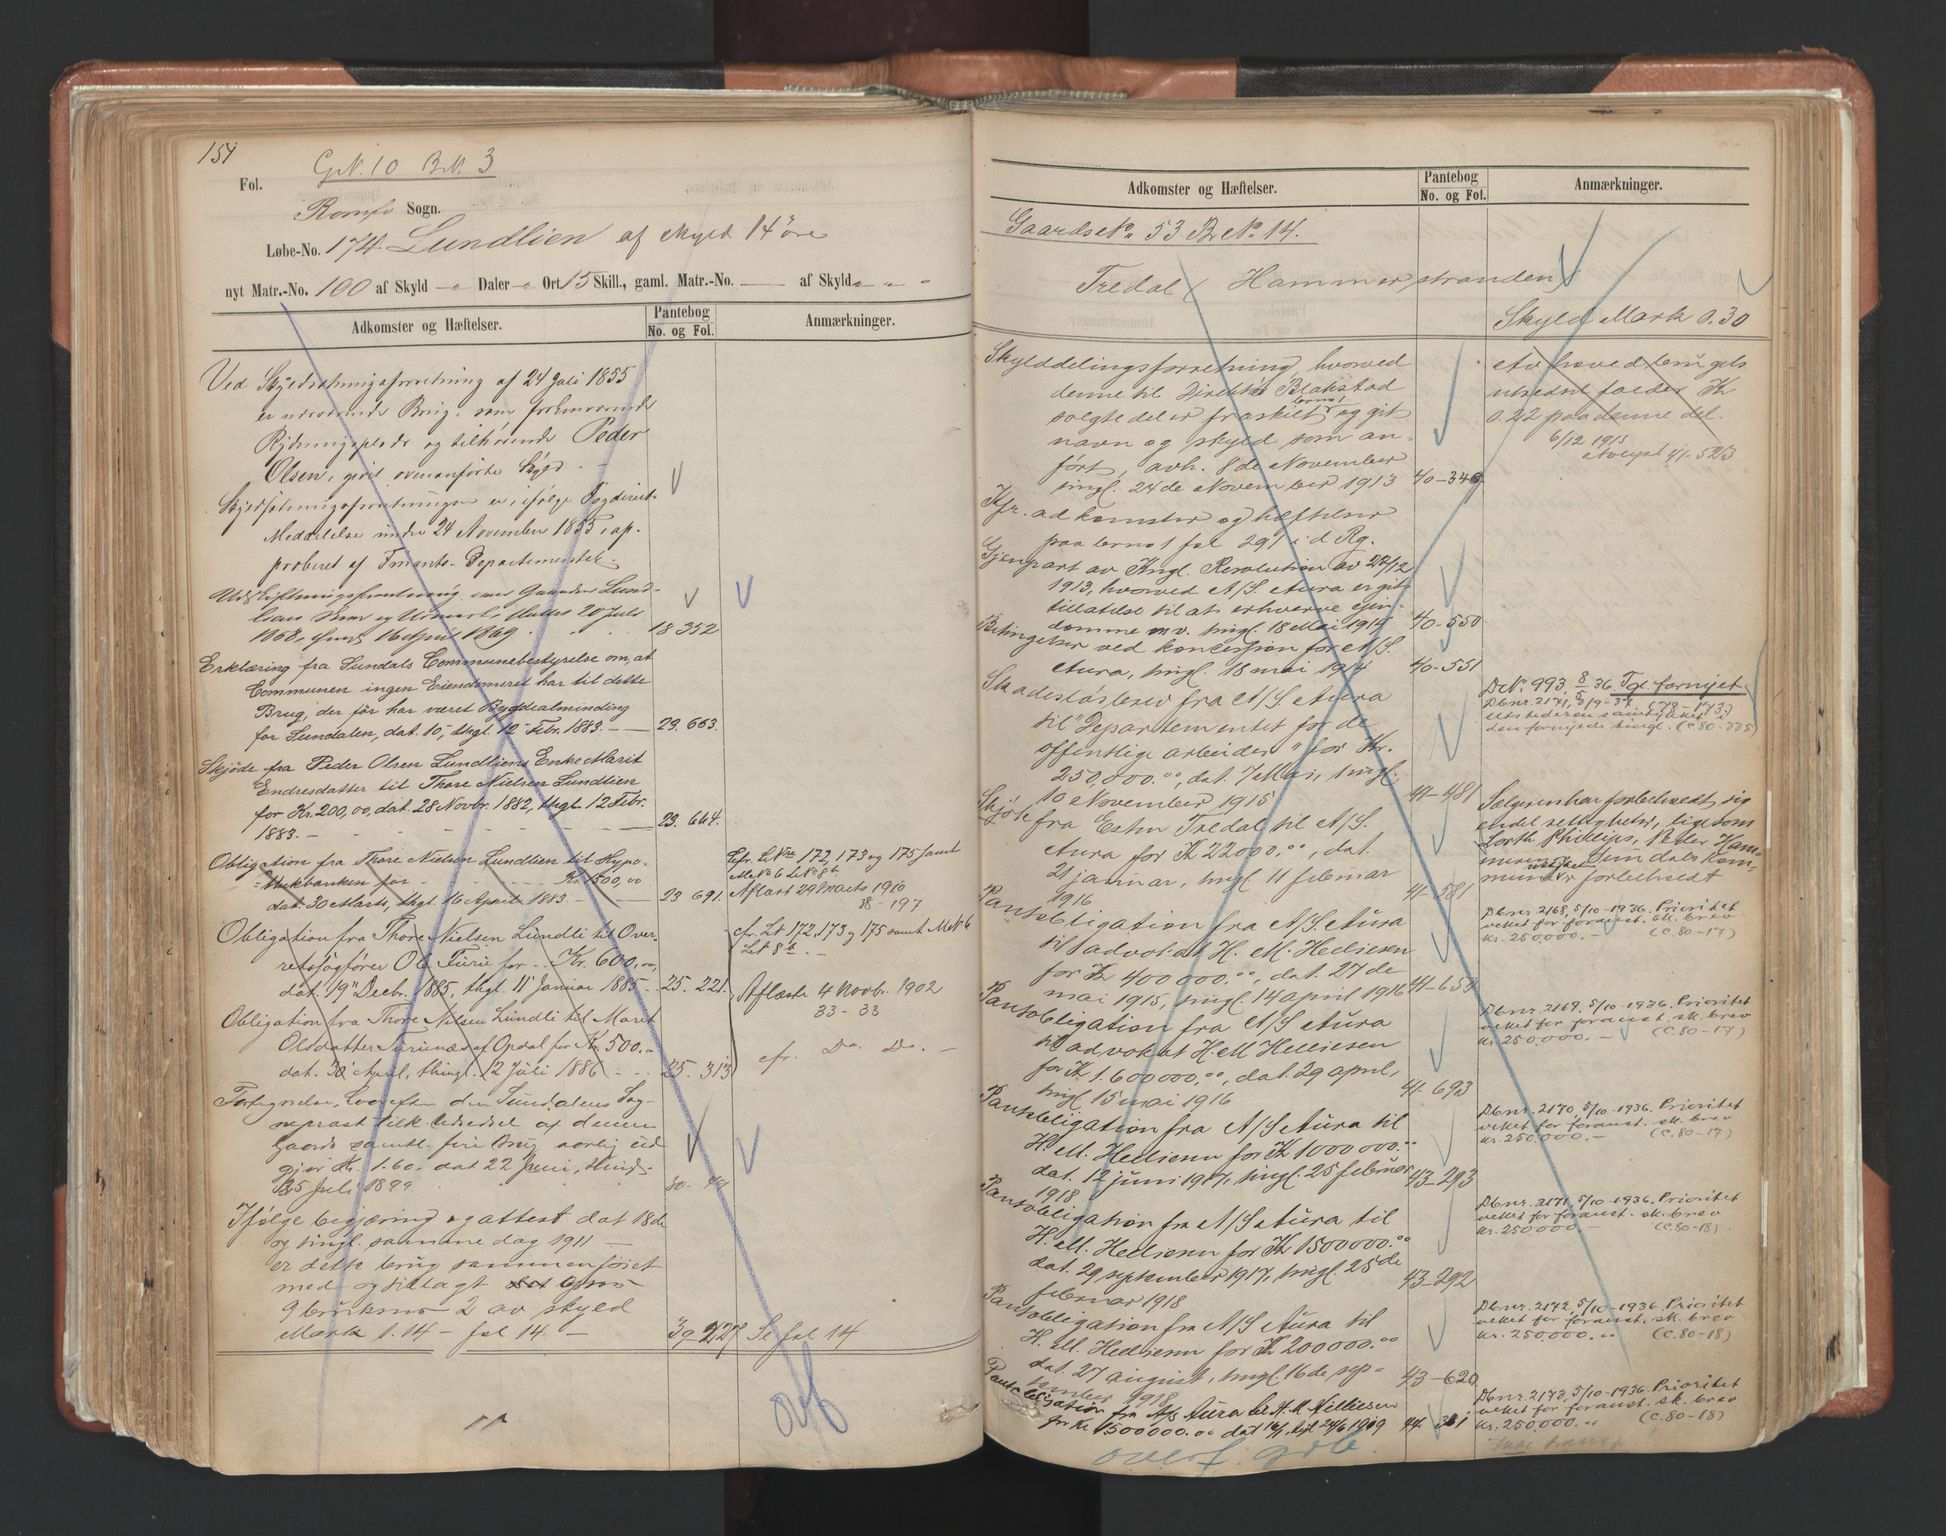 151
Fol.
GrN. 10 BrN. 3
Romfo Sogn.
Løbe-No. 174. Lundlien af Skyld 14 øre
nyt Matr.-No. 100 af Skyld „ Daler „ Ort 15 Skill., gaml. Matr.-No. — af Skyld „ „ „
Adkomster og Hæftelser.
Pantebog
No. og Fol.
Anmærkninger.
Ved Skyldsætningsforretning af 24 Juli 1855
er nærværende Brug, som forhenværende
Rydningsplads og tilhørende Peder
Olsen, givet ovenanførte Skyld.
Skyldsætningsforretningen er, ifølge Fogderiets
Meddelelse under 24 November 1855, ap-
proberet af Finants-Departementet.
Udskiftningsforretning over Gaarden Lund-
lien
1868, thingl. 16 April 1869. 18 352
Erklæring fra Sundals Communebestyrelse om, at
Communen ingen Eiendomsret har til dette
Brug, der før har været Bygdealminding
for Sundalen, dat. 10, thgl. 12 Febr. 1883. — 23. 663.
Skjøde fra Peder Olsen Lundliens Enke Marit
Endresdatter til Thore Nielsen Lundlien
for Kr. 200,00, dat. 28 Novbr. 1882, thgl. 12 Febr.
1883. — 23. 664.
Obligation fra Thore Nielsen Lundlien til Hypo-
thekbanken for — Kr. 1500,00
dat. 30 Marts, thgl. 16 April 1883. — 23 691.
Cfr. LNre 172, 173 og 175 samt
MNo 6 LNo 8b
Aflæst 29 Marts 1910
38-197
Obligation fra Thore Nielsen Lundli til Over-
retssagfører Ole Furu for .. Kr. 600,00,
dat. 19 Decbr. 1885, thgl. 11 Januar 1885 — 25. 221.
cfr. Lt 172, 173 og 175 samt MNo 6
Lt 8b. —
Aflæst 4 Novbr. 1902
33-33
Obligation fra Thore Nilsen Lundli til Maret
Olsdatter af Opdal for Kr. 500.
dat. 30 April, thingl. 12 Juli 1886 — 25. 313
cfr. Do. Do. —
Fortegnelse, hvorefter den Sundalens Sog-
neprest tillk. Udredsel af denne
Gaards samtl. fire Brug aarlig ud
gjør Kr. 1.60. dat 22 Juni, thingl.
25 Juli 1899 30-491
Ifølge begjæring og attest dat 18de
og tingl. samme dag 1911 —
er dette brug sammenføiet
med og tillagt gno
9 bruksno 2 av skyld
Mark 1.14 — fol 14 — 39 227 Se fol 14
Adkomster og Hæftelser.
Pantebog
No. og Fol.
Anmærkninger.
Gaards No. 53 B No. 14.
Tredal (Hammerstranden)
Skyld Mark 0.30
Skylddelingsforretning, hvorved
denne til Direktør Blakstad
solgte del er fraskilt brno 1 og git
navn og skyld som an-
ført, avh. 8de November
tingl. 24de November 1913 40-346
Av hovedbrugets
utredsel falder Kr
0.22 paa denne del.
6/12 1915
Avlyst 41-523
Kfr. adkomster og hæftelser
paa brno 1 fol 297 i d Rg.
Gjenpart av Kngl. Resolution av 22/12
1913, hvorved A/S. Aura er git
tillatelse til at erhverve eien-
domme m.v. tingl. 18 Mai 1914 40-550
Betingelser ved koncession for A/S.
Aura, tingl. 18 mai 1914 40-551
Skadesløsbrev fra A/S Aura
til "Departementet for de
offentlige arbeider" for Kr.
250,000.00, dat. 7 Mai, tingl.
10 November 1915 41-481
DNo. 993, 8/5 36 Tgl. fornyet
Dbnr. 2171, 5/9-37 (78-173)
Utstederens samtykke i
den fornyede tingl. (C. 80-335)
Skjøte fra Esten Tredal til A/S.
Aura for Kr 22000.00, dat.
21 januar, tingl 11 februar
1916 41-581
Sælgeren har forbeholdt sig
endel rettigheter, likesom
North Phillips, Peder Ham-
meren og Sundals kom-
mune forbeholdt
Pantobligation fra A/S Aura
til advokat H. M. Helliesen
for Kr 400000.00, dat. 27de
mai 1915, tingl. 14 april 1916 41-654
Dbnr. 2168, 5/10-1936. Prioritet
veket for foranst. sk. brev
kr. 250,000.- (C. 80-17)
Pantobligation fra A/S Aura
til advokat H. M. Helliesen
for Kr 1.600000.00, dat. 29 april,
tingl. 15 mai 1916 41-693
Dbnr. 2169, 5/10-1936. Prioritet
veket for foranst. sk. brev
kr. 250,000.- (C. 80-17)
Pantobligation fra A/S Aura til
H. M. Helliesen for Kr 1000000.00
dat. 12 juni 1917, tingl. 25 februar
1918 43-293
Dbnr. 2170, 5/10-1936. Prioritet
veket for foranst. sk. brev
kr. 250,000.- (C. 80-17)
Pantobligation fra A/S Aura til
H. M. Helliesen for Kr 1500000.00
dat. 29 september 1917, tingl. 25de
februar 1918 43-292
Dbnr. 2171, 5/10-1936. Prioritet
veket for foranst. sk. brev
kr. 250,000.- (C. 80-18)
Pantobligation fra A/S Aura til
H. M. Helliesen for Kr 200000.00
dat. 27 august, tingl. 16de sep-
tember 1918 43-620
Dbnr. 2172, 5/10-1936. Prioritet
veket for foranst. sk. brev
kr. 250,000.- (C. 80-18)
Pantobligation fra A/S Aura til H. M. Helliesen
for Kr 1500000.00 dat 16/1, tgl 24/6 1919 44. 301
Dbnr. 2173, 5/10-1936. Prioritet
veket for foranst. sk. brev
kr. 250,000.- (C. 80-18)
overf.